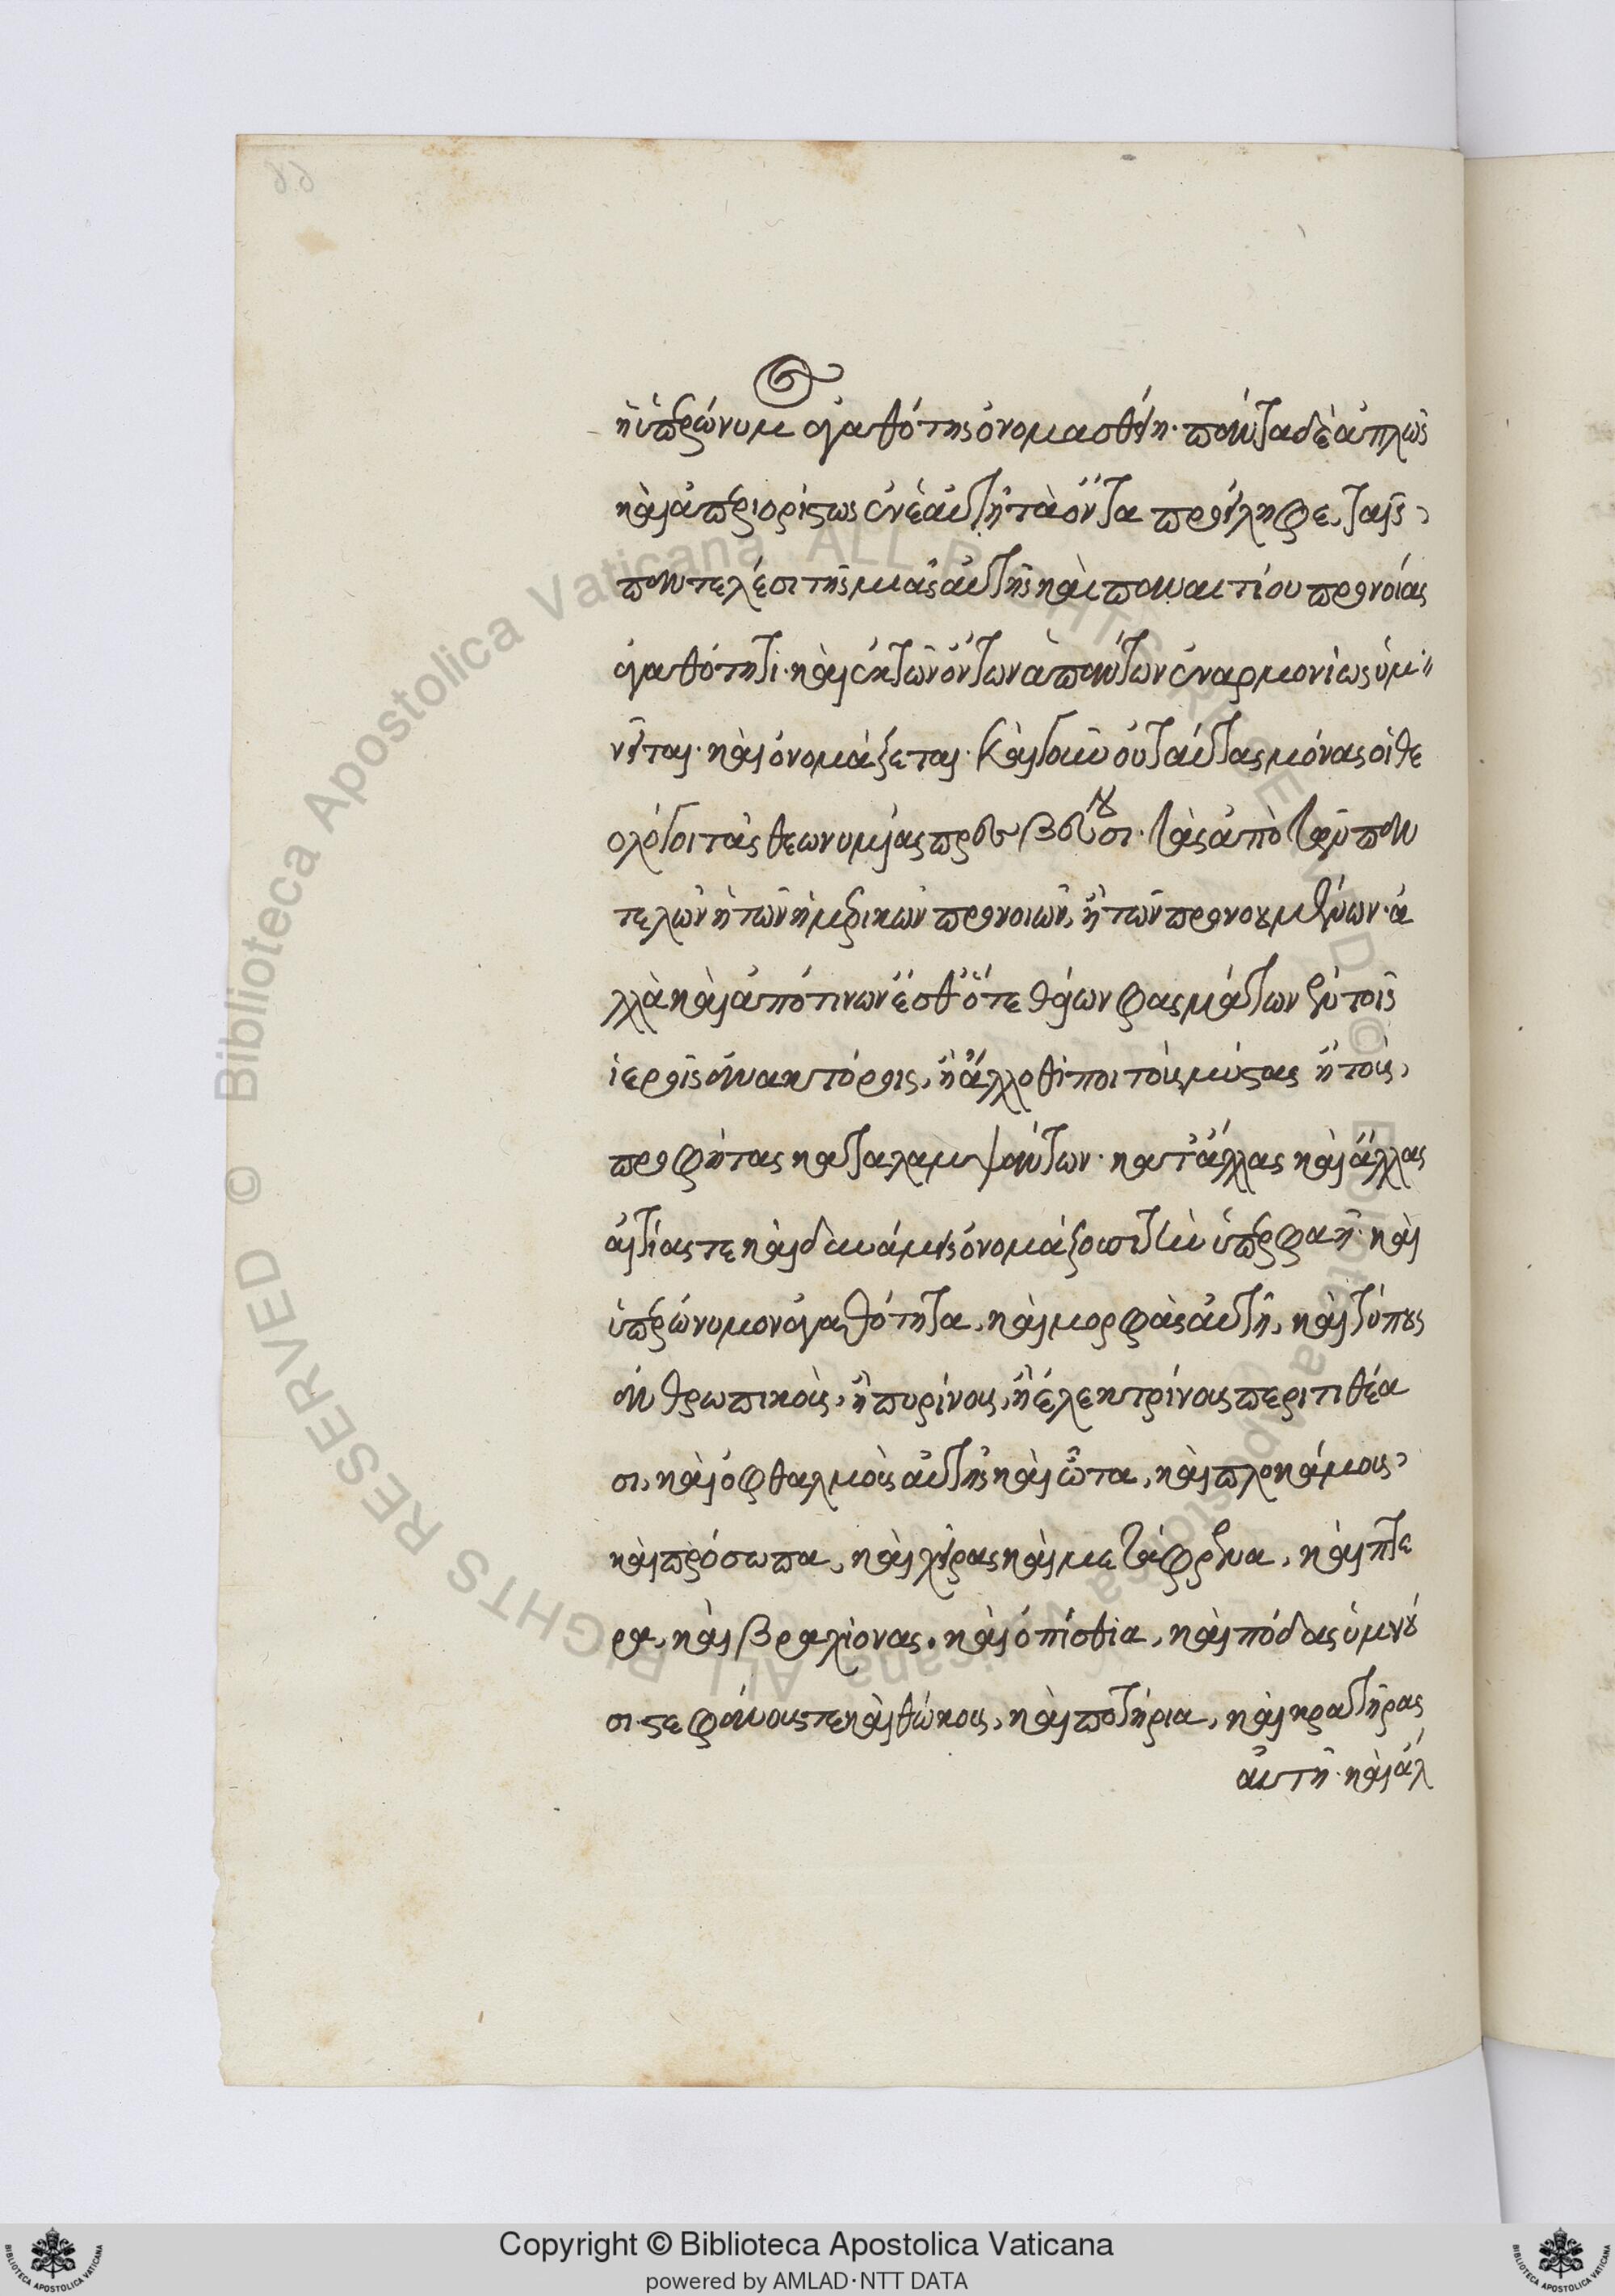 ἡ ὑπερώνυμος ἀγαθότης ὀνομασθείη· πάντα δὲ ἁπλῶς
καὶ ἀπεριορίστως ἐν ἑαυτῇ τὰ ὄντα προείληφε, ταῖς
παντελέσι τῆς μιᾶς αὐτῆς καὶ παναιτίου προνοίας
ἀγαθότητι· καὶ ἐκ τῶν ὄντων ἁπάντων ἐναρμονίως ὑμ
νεῖται· καὶ ὀνομάζεται· Καὶ γοῦν οὐ ταύτας μόνας οἱ θε
ολόγοι τὰς θεωνυμίας πρεσβεύουσι· τὰς ἀπὸ τῶν παν
τελῶν ἢ τῶν ἡ μερικῶν προνοιῶν, ἢ τῶν προνοουμένων· ἀ
λλὰ καὶ ἀπό τινων ἔσθ' ὅτε θείων φασμάτων ἐν τοῖς
ἱεροῖς ἀνακτόροις, ἢ ἄλλοθί ποι τοὺς μύστας ἢ τοὺς
προφήτας καταλαμψάντων· κατ' ἄλλας καὶ ἄλλας
αἰτίας τε καὶ δυνάμεις ὀνομάζουσι τὴν ὑπερφαῆ· καὶ
ὑπερώνυμον ἀγαθότητα, καὶ μορφὰς αὐτῇ, καὶ τύπους
ἀνθρωπικοὺς, ἢ πυρίνους, ἢ ἐλεκτρίνους περιτιθέα
σι, καὶ ὀφθαλμοὺς αὐτῆς καὶ ὦτα, καὶ πλοκάμους
καὶ πρόσωπα, καὶ χεῖρας καὶ μετάφρενα, καὶ πτε
ρα, καὶ βραχίονας, καὶ ὀπίσθια, καὶ πόδας ὑμνοῦ
σι· στεφάνους τε καὶ θώκους, καὶ ποτήρια, καὶ κρατῆρας
αὐτῇ· καὶ ἄλ
Copyright © Biblioteca Apostolica Vaticana
powered by AMLAD·NTT DATA